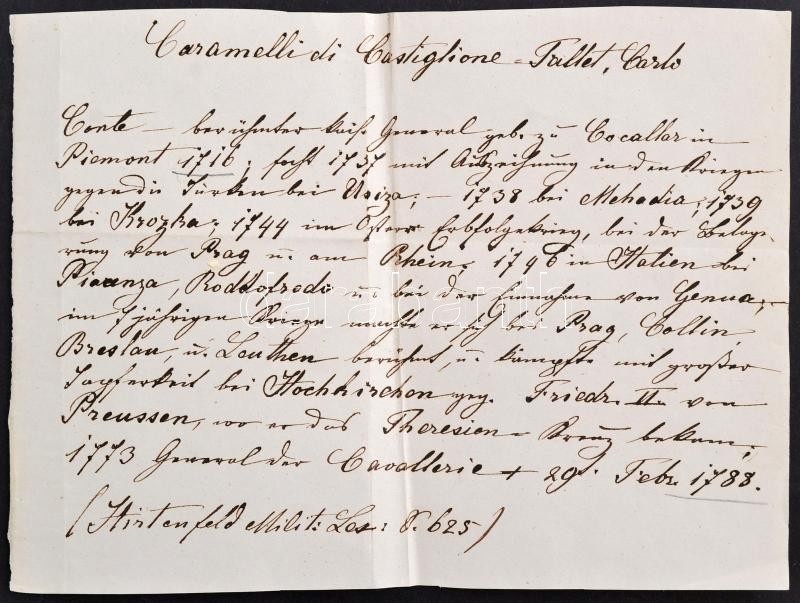 Caramelli di Castiglione = Taltet, Carlo
Conte – berühmter kais. General geb. zu Cocallar in
Piemont 1716; focht 1737 mit Auszeichnung in den Kriegen
gegen die Türken bei Usiza; – 1738 bei Mehadia; 1739
bei Krozka; 1744 im Österr. Erbfolgekrieg, bei der Belage-
rung von Prag u. am Rhein; 1746 in Italien bei
Piacenza, Roddofredo u. bei der Einnahme von Genua;
im 7jährigen Kriege machte er sich bei Prag, Collin,
Breslau, u. Leuthen berühmt, u. kämpfte mit großer
Tapferkeit bei Hochkirchen geg. Friedr. II. von
Preussen, wo er das Theresien = Kreuz bekam;
1773 General der Cavallerie + 29. Feb. 1788.
(Hirtenfeld Milit: Lex: S. 625)
darabanth